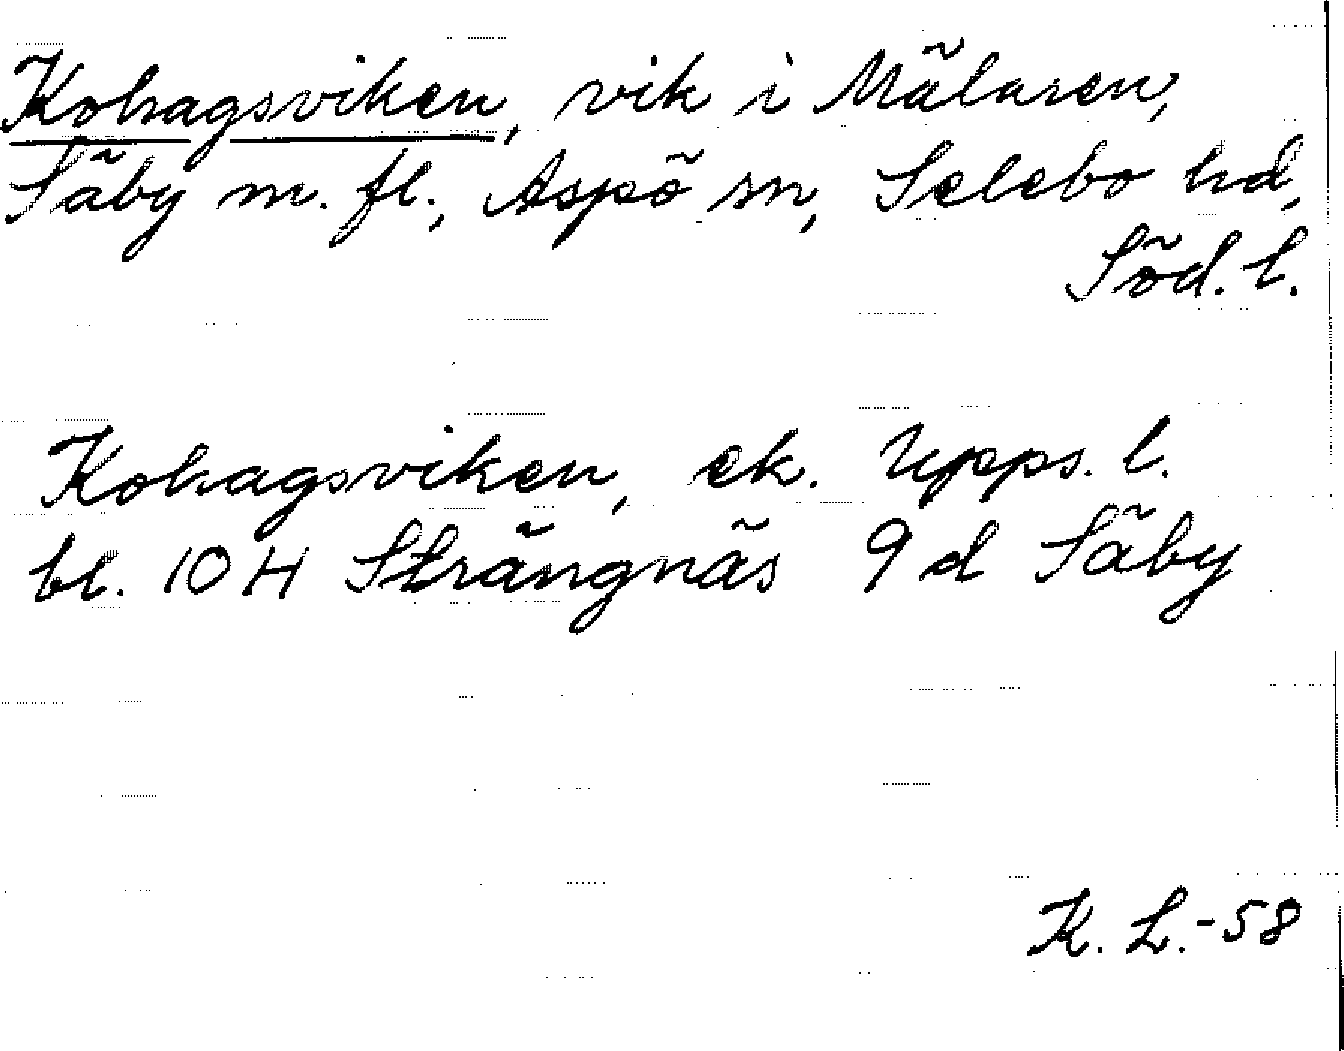 Kohagsviken, vik i Mälaren,
Säby m. fl., Aspö sn, Selebo hd,
Söd. l.
Kohagsviken, ek. Upps. l.
bl. 10 H Strängnäs 9 d Säby
K. L. -58